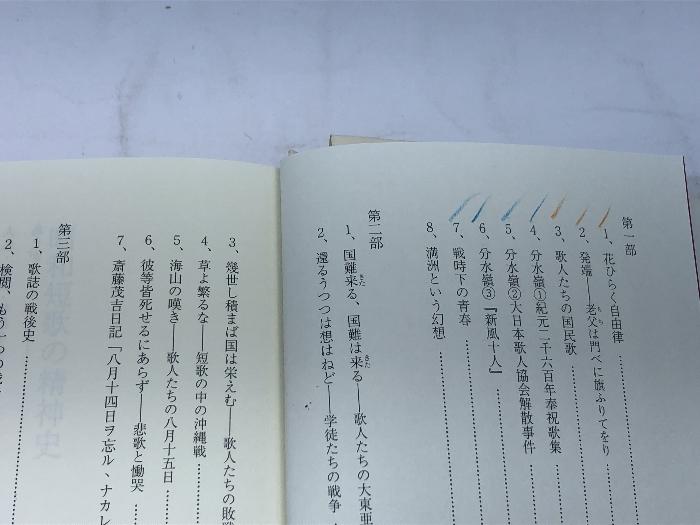 第一部
1、花ひらく自由律
2、発端――老父は門べに旗ふりてをり
3、歌人たちの国民歌
4、分水嶺①紀元二千六百年奉祝歌集
5、分水嶺②大日本歌人協会解散事件
6、分水嶺③『新風十人』
7、戦時下の青春
8、満洲という幻想
第二部
1、国難来る、国難は来る――歌人たちの大東亜
2、還るうつつは想はねど――学徒たちの戦争
3、幾世し積まば国は栄えむ――歌人たちの敗戦
4、草よ繁るな――短歌の中の沖縄戦
5、海山の嘆き――歌人たちの八月十五日
6、彼等皆死せるにあらず――悲歌と慟哭
7、斎藤茂吉日記「八月十四日ヲ忘ル、ナカレ
第三部
1、歌誌の戦後史
2、検閲、もう一つの戦
短歌の精神史